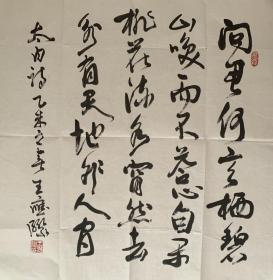 问君何意栖碧
山咲而不答心自闲
桃花流水窅然去
别有天地非人间
太白诗乙未之春王應際